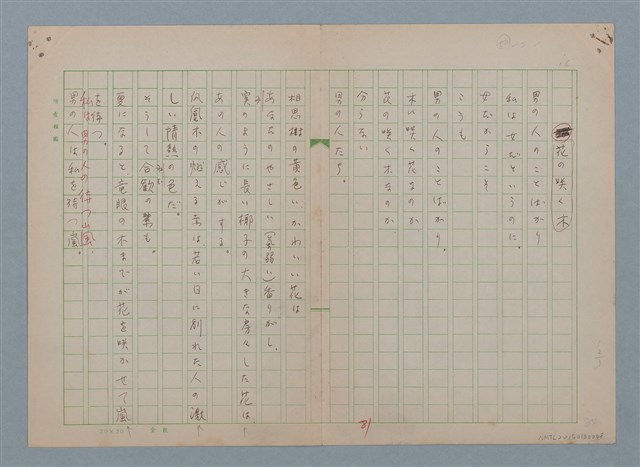 花の咲く木
男の人のことばかり
私は女だというのに、
女だからこそ
こうも
男の人のことばかり。
木に咲く花なのか
花の咲く木なのか、
分らない
男の人たち。
相思樹の黄色い、かわいい花は
あなたのやさしい(気弱い)香りがし、
実のように長い椰子の大きな房々した花は
あの人の感じがする。
鳳凰木の燃える赤は、若い日に別れた人の激
しい情熱の色だ。
そうして合歓の葉も。
夏になると竜眼の木までが花を咲かせて嵐
を待つ。
私は男の人の待つ嵐
男の人は私を待つ嵐。